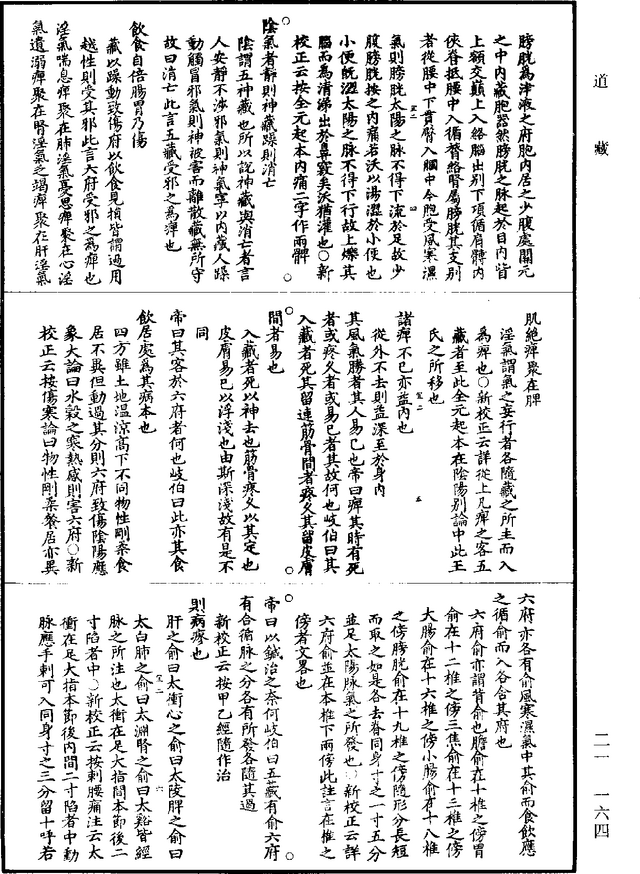 道藏
膀胱為津液之府胞內居之少腹處關元
之中內藏胞器然膀胱之脉起於目內眥
上額交巔上入絡腦出別下項循肩髆內
俠脊抵腰中入循膂絡腎屬膀胱其支別
者從腰中下貫臀入膕中今胞受風寒濕
氣則膀胱太陽之脉不得下流於足故少
腹膀胱按之內痛若沃以湯澀於小便也
小便既澀太陽之脉不得下行故上爍其
腦而為清涕出於鼻竅矣沃猶灌也○新
校正云按全元起本內痛二字作兩髀
陰氣者靜則神藏躁則消亡
陰謂五神藏也所以說神藏與消亡者言
人安靜不涉邪氣則神氣寧以內藏人躁
動觸冒邪氣則神被害而離散藏無所守
故曰消亡此言五藏受邪之為痺也
飲食自倍腸胃乃傷
藏以躁動致傷府以飲食見損皆謂過用
越性則受其邪此言六府受邪之為痺也
淫氣喘息痺聚在肺淫氣憂思痺聚在心淫
氣遺溺痺聚在腎淫氣乏竭痺聚在肝淫氣
肌絕痺聚在脾
淫氣謂氣之妄行者各隨藏之所主而入
為痺也○新校正云詳從上凡痺之客五
藏者至此全元起本在陰陽別論中此王
氏之所移也
諸痺不已亦益內也
從外不去則益深至於身內
其風氣勝者其人易已也帝曰痺其時有死
者或疼久者或易已者其故何也岐伯曰其
入藏者死其留連筋骨間者疼久其留皮膚
間者易已
入藏者死以神去也筋骨疼久以其定也
皮膚易已以浮淺也由斯深淺故有是不
同
帝曰其客於六府者何也岐伯曰此亦其食
飲居處為其病本也
四方雖土地温涼高下不同物性剛柔食
居不異但動過其分則六府致傷陰陽應
象大論曰水穀之寒熱感則害六府○新
校正云按傷寒論曰物性剛柔餐居亦異
六府亦各有俞風寒濕氣中其俞而食飲應
之循俞而入各舍其府也
六府俞亦謂背俞也膽俞在十椎之傍胃
俞在十二椎之傍三焦俞在十三椎之傍
大腸俞在十六椎之傍小腸俞在十八椎
之傍膀胱俞在十九椎之傍隨形分長短
而取之如是各去脊同身寸之一寸五分
並足太陽脉氣之所發也○新校正云詳
六府俞並在本椎下兩傍此註言在椎之
傍者文畧也
帝曰以鍼治之奈何岐伯曰五藏有俞六府
有合循脉之分各有所發各隨其過
新校正云按甲乙經隨作治
則病瘳也
肝之俞曰太衝心之俞曰太陵脾之俞曰
太白肺之俞曰太淵腎之俞曰太谿皆經
脉之所注也太衝在足大指間本節後二
寸陷者中○新校正云按刺腰痛注云太
衝在足大指本節後內間二寸陷者中動
脉應手刺可入同身寸之三分留十呼若
二一 一六四